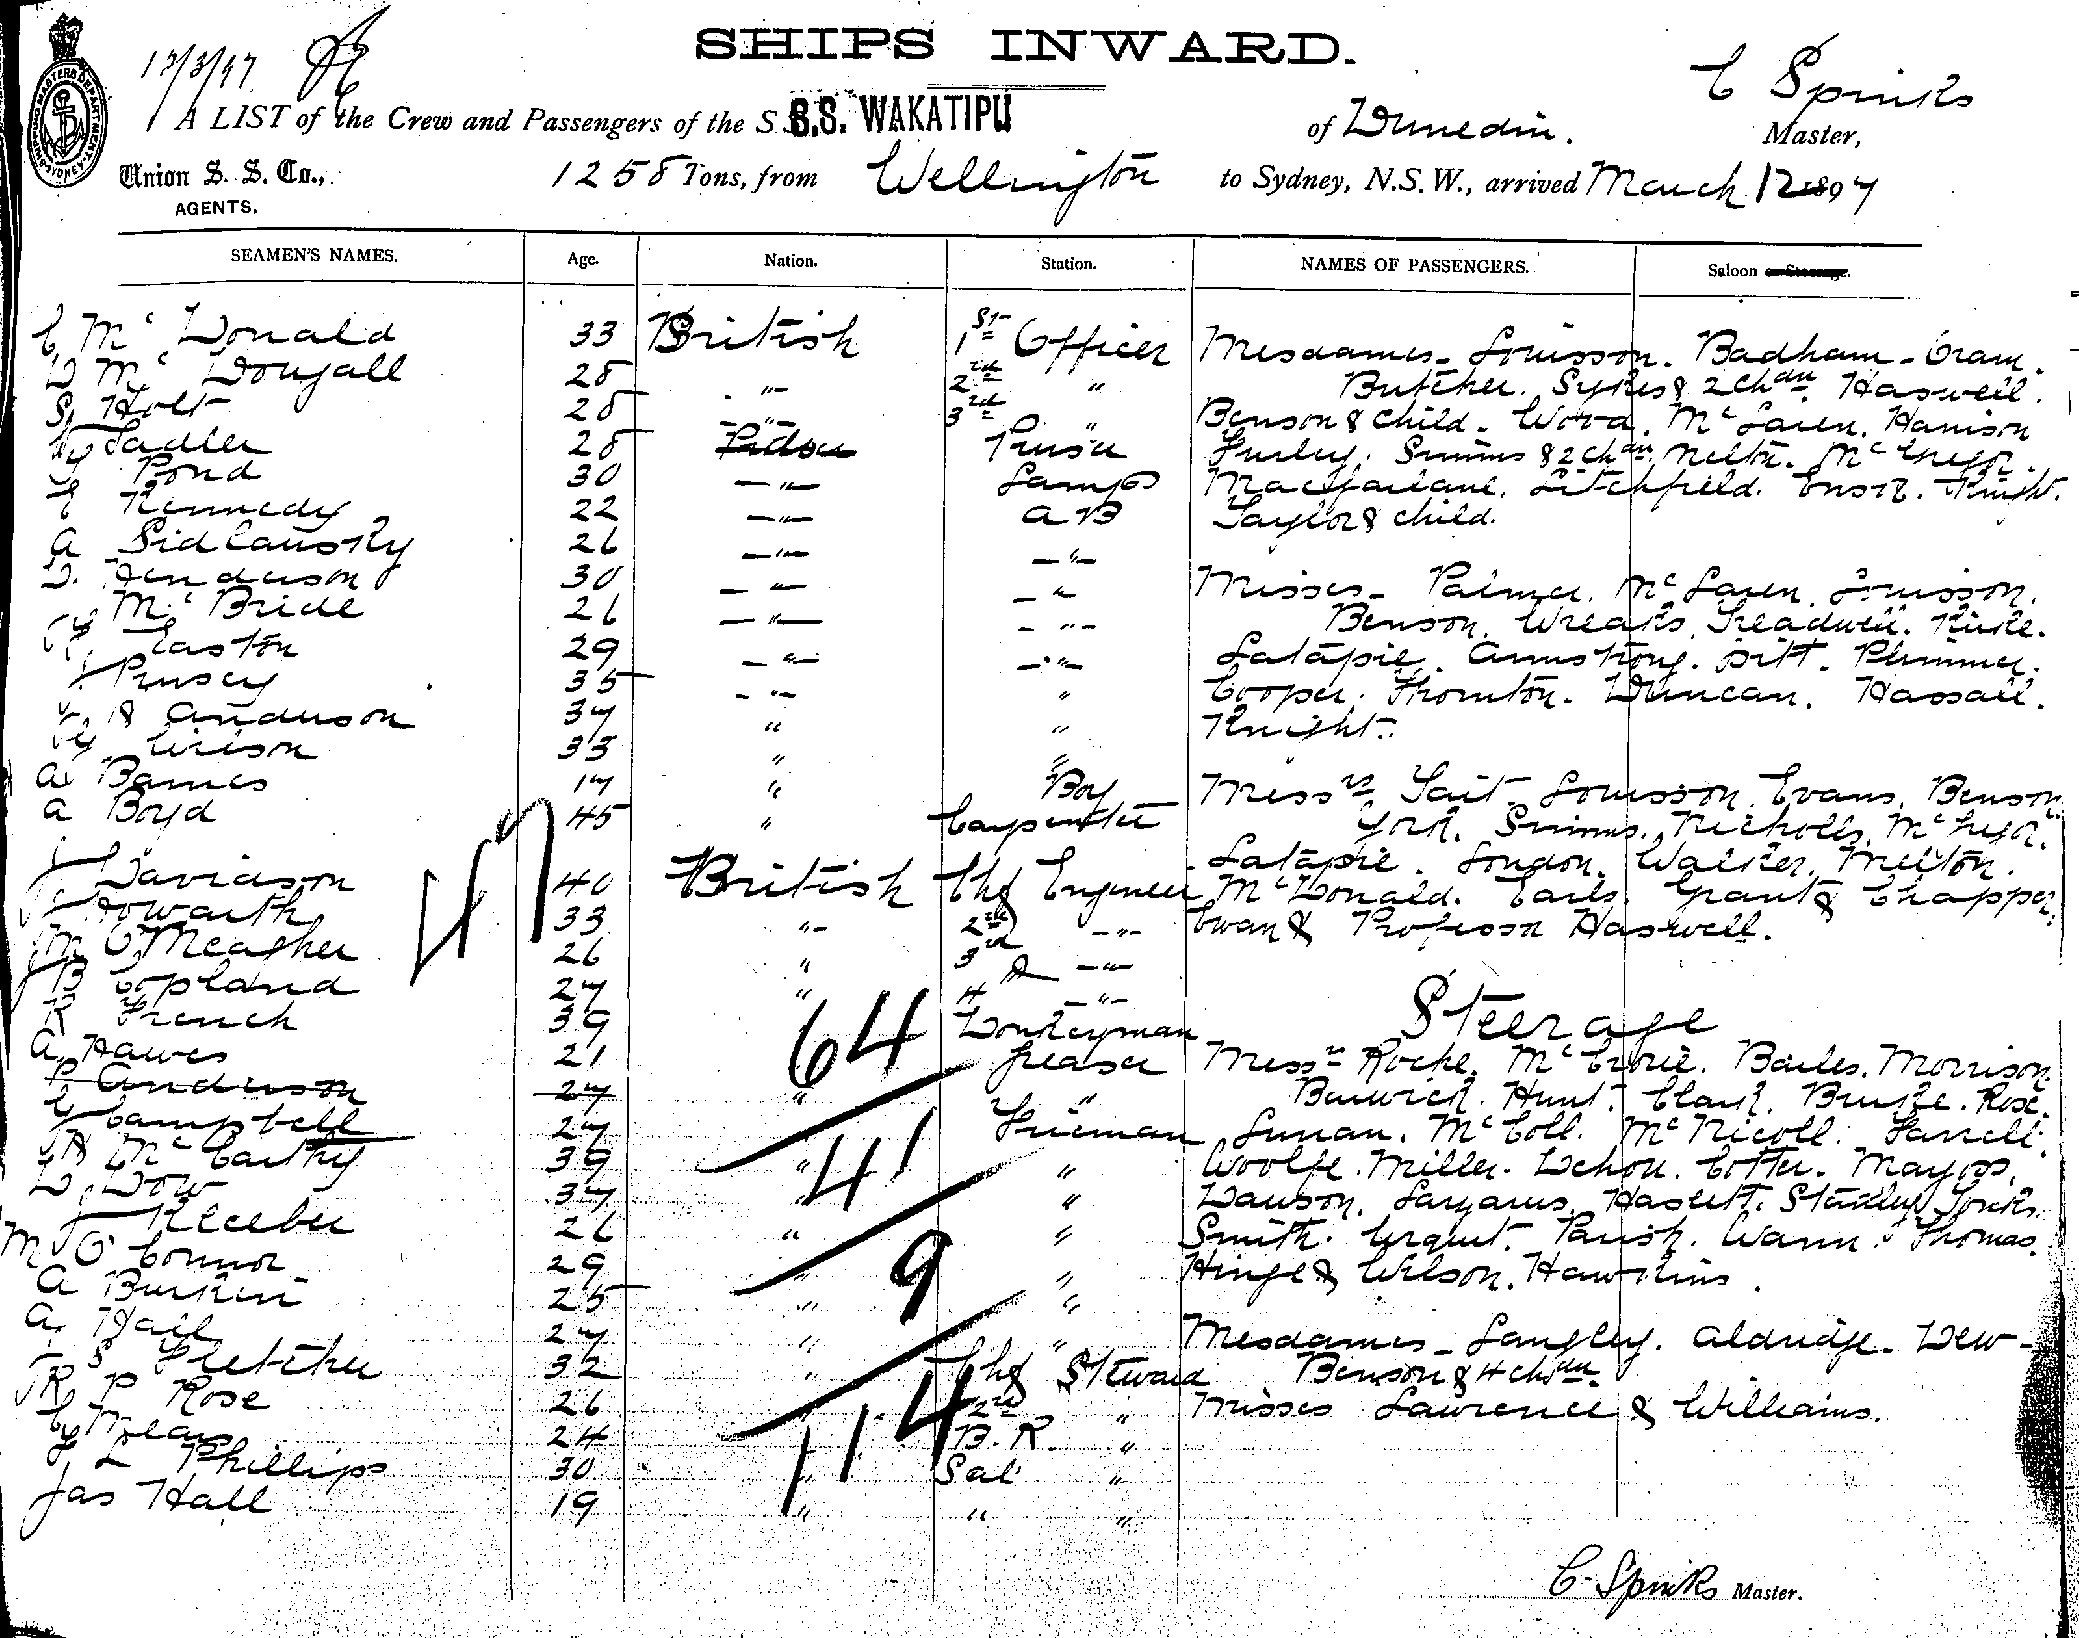 SHIPS INWARD.
12/3/97
C Spinks
A LIST of the Crew and Passengers of the S.S. WAKATIPU of Dunedin. Master,
Union S. S. Co., 1258 Tons, from Wellington to Sydney, N.S.W., arrived March 12 1897
AGENTS.
SEAMEN'S NAMES. Age. Nation. Station. NAMES OF PASSENGERS. Saloon or Steerage.
C Mc Donald 33 British 1st Officer Mesdames - Louisson. Badham - Cram.
D Mc Dougall 28 " 2nd " Butcher. Sykes & 2 chdn Haswell.
S Holt 28 " 3rd " Benson & child. Wood. Mc Laren. Harrison
Sadler 28 Purser Simms & 2 chdn. Melton. Mc Gregor.
Pond 30 " Lamps Macfarlane. Litchfield. Ensor. Knight.
Kennedy 22 " A B Taylor & child.
A Sidlausky 26 " "
D. Henderson 30 " " Misses - Palmer. Mc Laren. Louisson.
Mc Bride 26 " " Benson. Wreaks. Treadwell. Kirke.
Easton 29 " " Latapie. Armstrong. Pitt. Plimmer.
Pursey 35 " " Cooper. Thornton. Duncan. Hassall.
Anderson 37 " " Knight.
33 " "
A Barnes 17 " Boy Messrs Tait. Louisson. Evans. Benson.
A Boyd 45 " Carpenter York. Simms. Nicholls. Mc Gregor.
Latapie. London. Walker. Melton.
J Davidson 40 British Chf Engineer Mc Donald. Earls. Grant & Chapper
Howarth 33 " 2nd " Cwan & Professor Haswell.
M O'Meagher 26 " 3rd "
B Copland 27 " 4 "
R French 39 Donkeyman Steerage
A. Hawes 21 Greaser Messrs Roche. Mc Crorie. Bailes. Morrison.
C Anderson 27 " " Barwick. Hunt. Clark. Burke. Rose.
G Campbell 27 Fireman Lunan. Mc Coll. Mc Nicoll. Farrell.
Mc Carthy 39 " " Woolfe. Miller. Dehon. Cotter. Mayoss.
D. Dow 37 " Dawson. Lazarus. Haslett. Stanley. Jonks.
J Kleeber 26 " " Smith. Urquit. Parish. Wann. Thomas.
M O'Connor 29 " " Hinge & Wilson. Hawkins.
A Burkin 25 " "
A. Hall 27 " " Mesdames - Langley. Aldridge. Dew -
S Fletcher 32 " Chf Steward Benson & 4 chdn.
R P Rose 26 " 2nd " Misses Lawrence & Williams.
24 B.R. "
L Phillips 30 " Sal "
Jas Hall 19 " " "
47
64
41
9
114
C. Spinks Master.